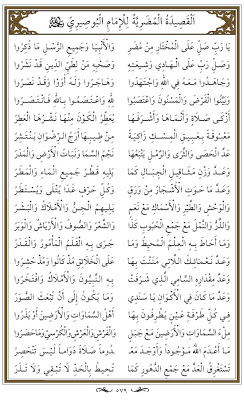 اَلْقَصِيدَةُ الْمُضَرِيَّةُ لِلْإِمَامِ الْبُوصِيرِيِّ
يَا رَبِّ صَلِّ عَلَى الْمُخْتَارِ مِنْ مُضَرِ وَالْأَنْبِيَا وَجَمِيعِ الرُّسْلِ مَا ذُكِرُوا
وَصَلِّ رَبِّ عَلَى الْهَادِي وَشِيعَتِهِ وَصَحْبِهِ مَنْ لِطَيِّ الدِّينِ قَدْ نَشَرُوا
وَجَاهَدُوا مَعَهُ فِي اللهِ وَاجْتَهَدُوا وَهَاجَرُوا وَلَهُ آوَوْا وَقَدْ نَصَرُوا
وَبَيَّنُوا الْفَرْضَ وَالْمَسْنُونَ وَاعْتَصَبُوا لِلهِ وَاعْتَصَمُوا بِاللهِ فَانْتَصَرُوا
أَزْكَى صَلَاةٍ وَأَنْمَاهَا وَأَشْرَفَهَا يُعَطِّرُ الْكَوْنَ مِنْهَا نَشْرُهَا الْعَطِرُ
مَعْبُوقَةً بِعَبِيقِ الْمِسْكِ زَاكِيَةً مِنْ طِيبِهَا أَرَجُ الرِّضْوَانِ يَنْتَشِرُ
عَدَّ الْحَصَى وَالثَّرَى وَالرَّمْلِ يَتْبَعُهَا نَجْمُ السَّمَا وَنَبَاتُ الْأَرْضِ وَالْمَدَرُ
وَعَدَّ وَزْنِ مَثَاقِيلِ الْجِبَالِ كَمَا يَلِيهِ قَطْرُ جَمِيعِ الْمَاءِ وَالْمَطَرُ
وَعَدَّ مَا حَوَتِ الْأَشْجَارُ مِنْ وَرَقٍ وَكُلِّ حَرْفٍ غَدَا يُتْلَى وَيُسْتَطَرُ
وَالْوَحْشِ وَالطَّيْرِ وَالْأَسْمَاكِ مَعْ نَعَمٍ يَلِيهِمُ الْجِنُّ وَالْأَمْلَاكُ وَالْبَشَرُ
وَالذَّرُّ وَالنَّمْلُ مَعْ جَمْعِ الْحُبُوبِ كَذَا وَالشَّعْرُ وَالصُّوفُ وَالْأَرْيَاشُ وَالْوَبَرُ
وَمَا أَحَاطَ بِهِ الْعِلْمُ الْمُحِيطُ وَمَا جَرَى بِهِ الْقَلَمُ الْمَأْمُورُ وَالْقَدَرُ
وَعَدَّ نَعْمَائِكَ اللَّاتِي مَنَنْتَ بِهَا عَلَى الْخَلَائِقِ مُذْ كَانُوا وَمُذْ حُشِرُوا
وَعَدَّ مِقْدَارِهِ السَّامِي الَّذِي شَرُفَتْ بِهِ النَّبِيُّونَ وَالْأَمْلَاكُ وَافْتَخَرُوا
وَعَدَّ مَا كَانَ فِي الْأَكْوَانِ يَا سَنَدِي وَمَا يَكُونُ إِلَى أَنْ تُبْعَثَ الصُّوَرُ
فِي كُلِّ طَرْفَةِ عَيْنٍ يَطْرِفُونَ بِهَا أَهْلُ السَّمَاوَاتِ وَالْأَرَضِينَ أَوْ يَذَرُوا
مِلْءَ السَّمَاوَاتِ وَالْأَرَضِينَ مَعْ جَبَلٍ وَالْفَرْشِ وَالْعَرْشِ وَالْكُرْسِيِّ وَمَا حَصَرُوا
مَا أَعْدَمَ اللهُ مَوْجُودًا وَأَوْجَدَ مَعْدُومًا صَلَاةً دَوَامًا لَيْسَ تَنْحَصِرُ
تَسْتَغْرِقُ الْعَدَّ مَعْ جَمْعِ الدُّهُورِ كَمَا تُحِيطُ بِالْحَدِّ لَا تُبْقِي وَلَا تَذَرُ